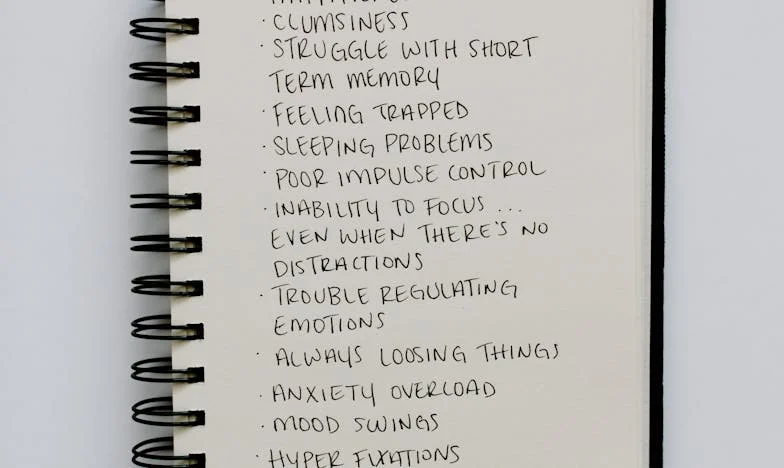 · CLUMSINESS
· STRUGGLE WITH SHORT
TERM MEMORY
· FEELING TRAPPED
· SLEEPING PROBLEMS
· POOR IMPULSE CONTROL
· INABILITY TO FOCUS ...
EVEN WHEN THERE'S NO
DISTRACTIONS
· TROUBLE REGULATING
EMOTIONS
· ALWAYS LOOSING THINGS
· ANXIETY OVERLOAD
· MOOD SWINGS
· HYPER FIXATIONS